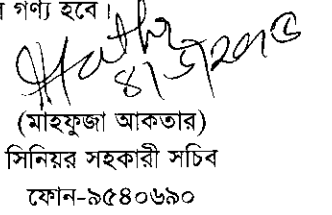 গণ্য হবে।
(মাহফুজা আকতার)
সিনিয়র সহকারী সচিব
ফোন-৯৫৪০৬৯০